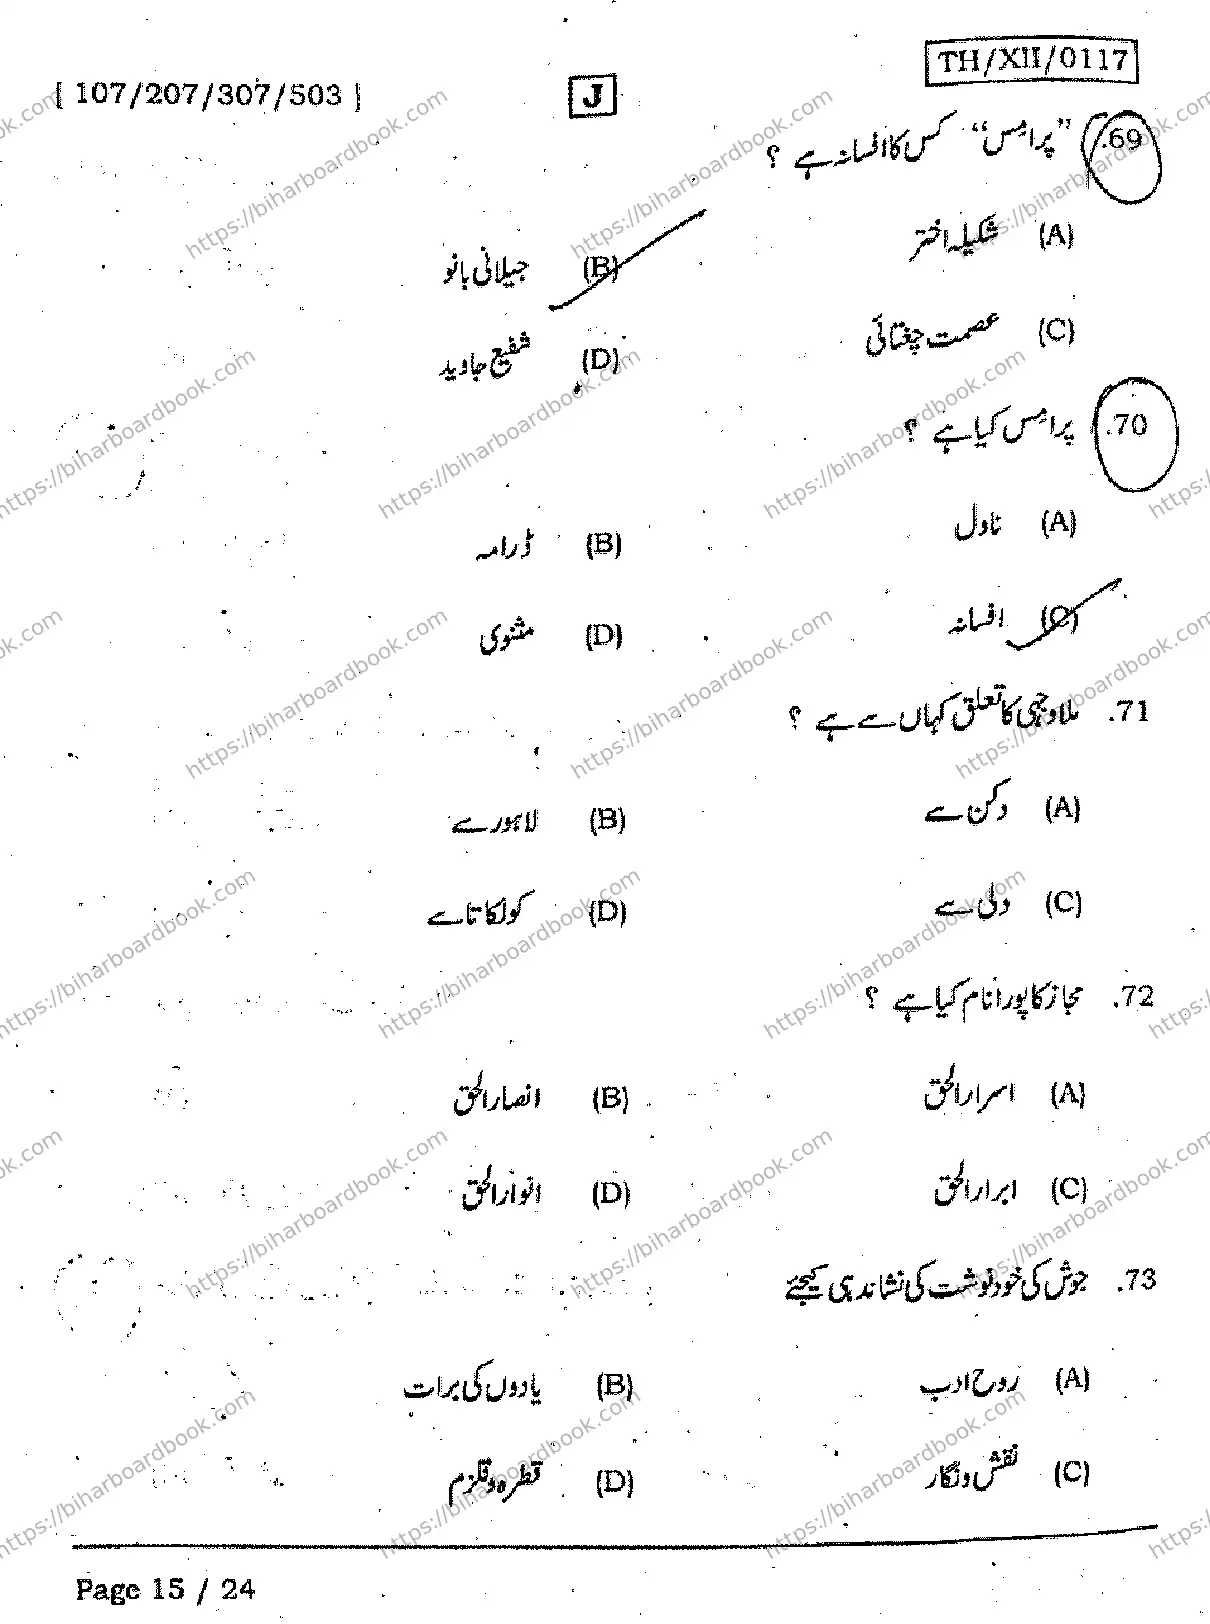 [ 107/207/307/503 ]
J
TH/XII/0117
69. "پرامِس" کس کا افسانہ ہے ؟
(A) شکیلہ اختر
(B) جیلانی بانو
(C) عصمت چغتائی
(D) شفیع جاوید
70. پرامِس کیا ہے ؟
(A) ناول
(B) ڈرامہ
(C) افسانہ
(D) مثنوی
71. ملا وجہی کا تعلق کہاں سے ہے ؟
(A) دکن سے
(B) لاہور سے
(C) دلی سے
(D) کولکاتا سے
72. مجاز کا پورا نام کیا ہے ؟
(A) اسرارالحق
(B) انصارالحق
(C) ابرارالحق
(D) انوارالحق
73. جوش کی خودنوشت کی نشاندہی کیجئے
(A) روح ادب
(B) یادوں کی برات
(C) نقش و نگار
(D) قطرہ و قلزم
Page 15 / 24
https://biharboardbook.com